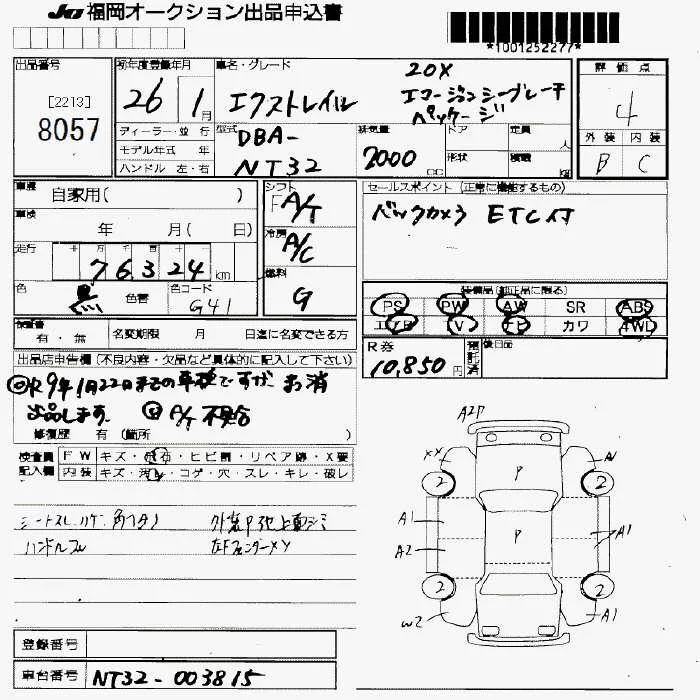 JU 福岡オークション出品申込書
*1001252277*
出品番号
[2213]
8057
初年度登録年月
26年 1月
車名・グレード
20X
エクストレイル エマージョンシーブレーキ
パッケージ
評価点
4
外装 内装
B C
ディーラー・並行
モデル年式 年
ハンドル 左・右
型式
DBA-
NT32
排気量
2000 cc
ドア
形状
定員 人
積載 kg
車歴
自家用( )
車検
年 月( 日)
走行
十 万 千 百 十
76,324 km
色
黒
色替
色コード
G41
シフト
F A/T
冷房
A/C
燃料
G
セールスポイント (正常に機能するもの)
バックカメラ ETC付
装備品(純正品に限る)
PS PW AW SR ABS
エアB V ナビ カワ 4WD
有・無 名変期限 月 日迄に名変できる方
R券
10,850円
預託済
後日品
出品店申告欄 (不良内容・欠品など具体的に記入して下さい)
R9年1月22日までの車検ですが、まっ消
出品します。 A/T 不具合
修復歴 有 (箇所 )
検査員 FW キズ・飛石・ヒビ割・リペア跡・X要
記入欄 内装 キズ・汚れ・コゲ・穴・スレ・キレ・破レ
A2P
XX
P
2
2
A1
A2
P
A1
2
2
W2
A1
登録番号
車台番号 NT32-003815